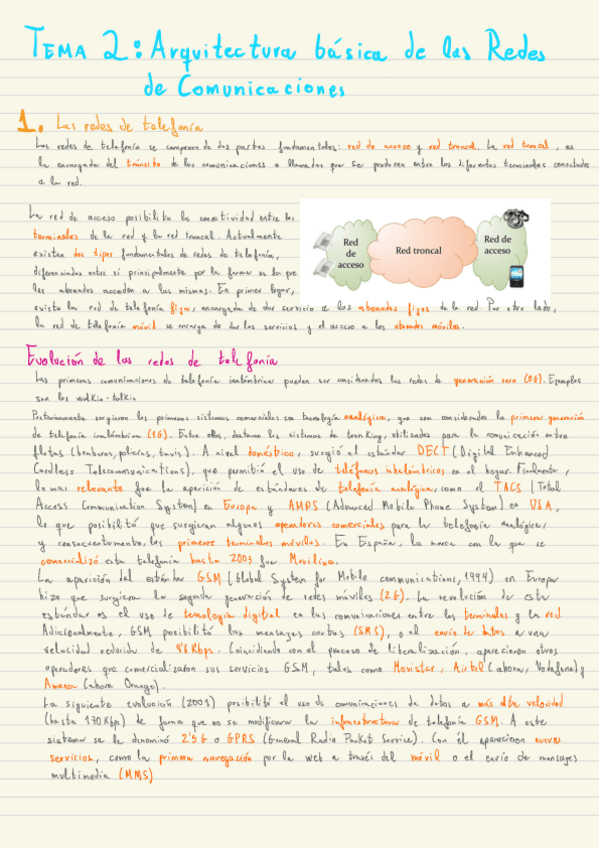 TEMA 2: Arquitectura básica de las Redes
de Comunicaciones
1. Las redes de telefonía
Las redes de telefonía se componen de dos partes fundamentales: red de acceso y red troncal. La red troncal, es
la encargada del tránsito de las comunicaciones o llamadas que se producen entre los diferentes terminales conectados
a la red.
La red de acceso posibilita la conectividad entre los
terminales de la red y la red troncal. Actualmente
existen dos tipos fundamentales de redes de telefonía,
diferenciadas entre sí principalmente por la forma en la que
los abonados acceden a las mismas. En primer lugar,
existe la red de telefonía fija, encargada de dar servicio a los abonados fijos de la red. Por otro lado,
la red de telefonía móvil se encarga de dar los servicios y el acceso a los abonados móviles.
Red de acceso
Red troncal
Red de acceso
Evolución de las redes de telefonía
Las primeras comunicaciones de telefonía inalámbrica pueden ser considerados las redes de generación cero (0G). Ejemplos
son los walkie-talkie
Posteriormente surgieron los primeros sistemas comerciales con tecnología analógica, que son considerados la primera generación
de telefonía inalámbrica (1G). Entre ellos, destacan los sistemas de trunking, utilizados para la comunicación entre
flotas (bomberos, policías, taxis). A nivel doméstico, surgió el estándar DECT (Digital Enhanced
Cordless Telecommunications), que permitió el uso de teléfonos inalámbricos en el hogar. Finalmente,
lo mas relevante fue la aparición de estándares de telefonía analógica, como el TACS (Total
Access Communication System) en Europa y AMPS (Advanced Mobile Phone System) en USA,
lo que posibilitó que surgieran algunos operadores comerciales para la telefonía analógica,
y consecuentemente, los primeros terminales móviles. En España, la marca con la que se
comercializó esta telefonía hasta 2003 fue Moviline.
La aparición del estándar GSM (Global System for Mobile communications, 1994) en Europa
hizo que surgiera la segunda generación de redes móviles (2G). La revolución de este
estándar es el uso de tecnología digital en las comunicaciones entre los terminales y la red.
Adicionalmente, GSM posibilitó los mensajes cortos (SMS), o el envío de datos a una
velocidad reducida de 9'6 Kbps. Coincidiendo con el proceso de liberalización, aparecieron otros
operadores que comercializaron sus servicios GSM, tales como Movistar, Airtel (ahora, Vodafone) y
Amena (ahora Orange).
La siguiente evolución (2001) posibilitó el uso de comunicaciones de datos a más alta velocidad
(hasta 170 Kbps) de forma que no se modificara la infraestructura de telefonía GSM. A este
sistema se le denominó 2'5 G o GPRS (General Radio Packet Service). Con él aparecieron nuevos
servicios, como la primera navegación por la web a través del móvil o el envío de mensajes
multimedia (MMS)